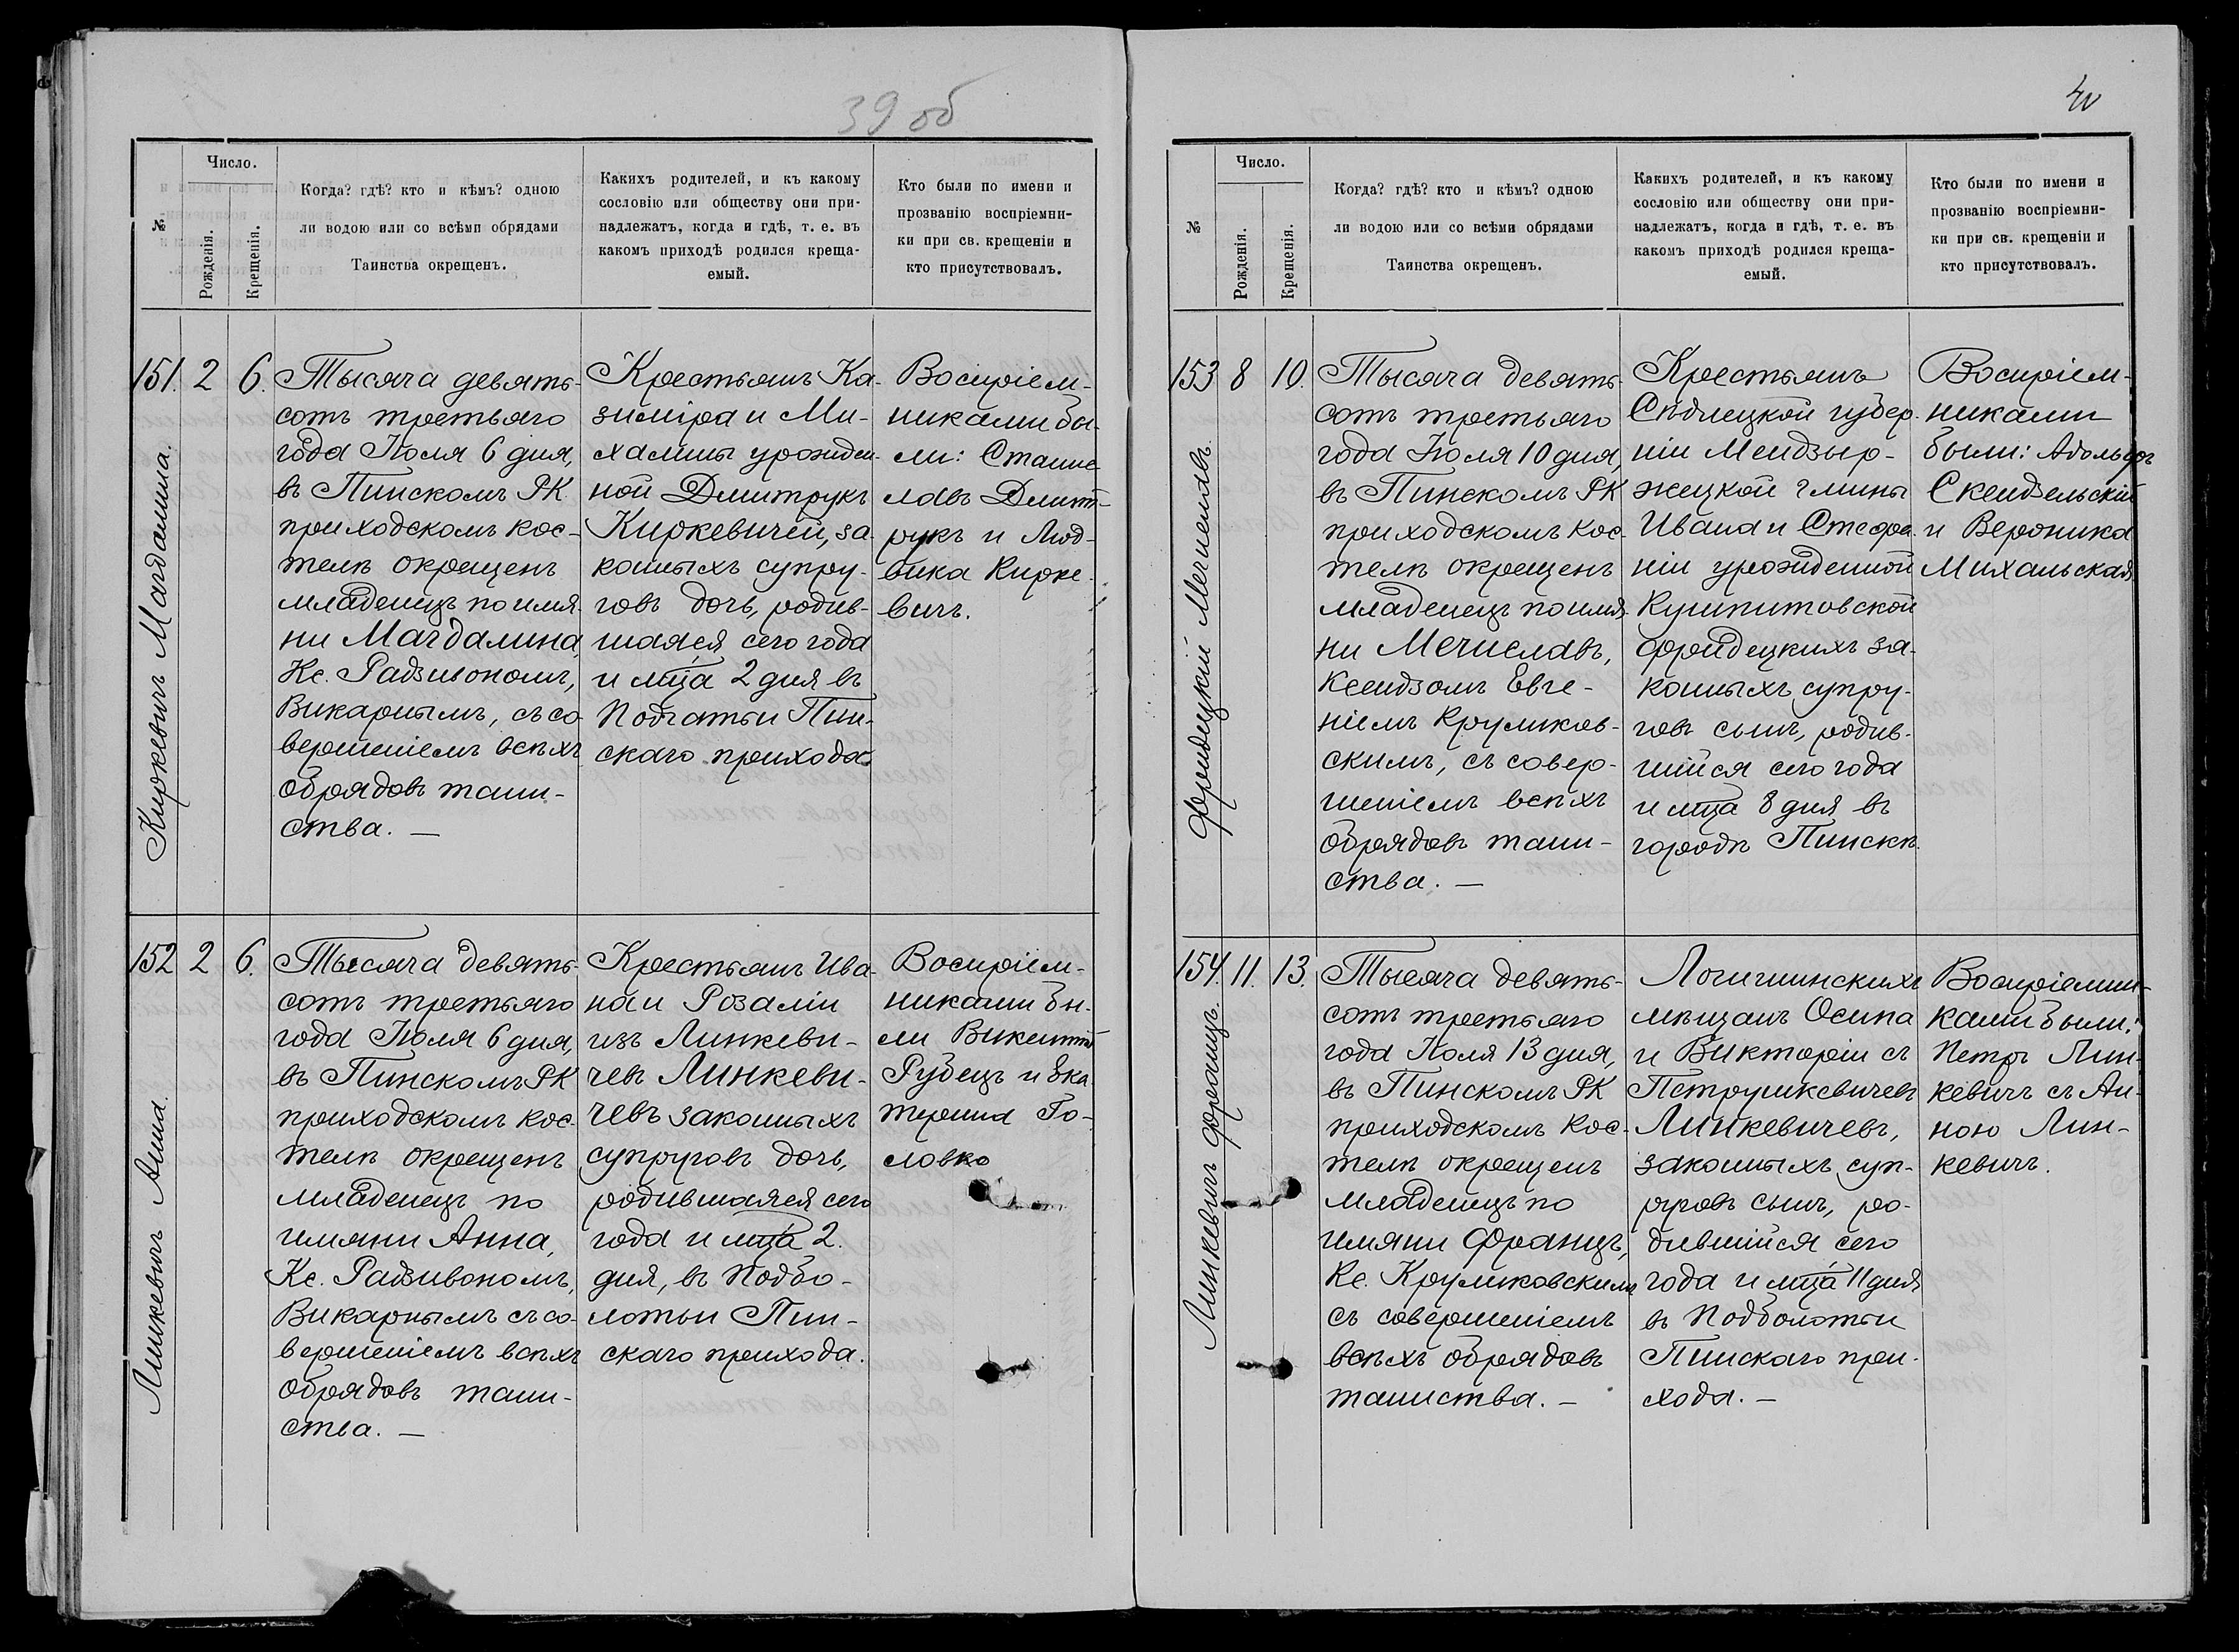 39 об
№
Число.
Рожденія.
Крещенія.
Когда? гдѣ? кто и кѣмъ? одною
ли водою или со всѣми обрядами
Таинства окрещенъ.
Какихъ родителей, и къ какому
сословію или обществу они при-
надлежатъ, когда и гдѣ, т. е. въ
какомъ приходѣ родился креща-
емый.
Кто были по имени и
прозванію воспріемни-
ки при св. крещеніи и
кто присутствовалъ.
151. 2 6.
Киркевичъ Магдалина.
Тысяча девять-
сотъ третьяго
года Іюля 6 дня,
въ Пинскомъ РК
приходскомъ кос-
телѣ окрещенъ
младенецъ по имя-
ни Магдалина,
Кс. Радзивономъ,
Викарнымъ, съ со-
вершеніемъ всѣхъ
обрядовъ таин-
ства. —
Крестьянъ Ка-
зиміра и Ми-
халины урожден-
ной Дмитрукъ
Киркевичей, за-
конныхъ супру-
говъ дочь, родив-
шаяся сего года
и мца 2 дня въ
Подгатьи Пин-
скаго прихода.
Воспріем-
никами бы-
ли: Станис-
лавъ Дмит-
рукъ и Люд-
вика Кирке-
вичъ.
152 2 6.
Линкевичъ Анна.
Тысяча девять-
сотъ третьяго
года Іюля 6 дня,
въ Пинскомъ РК
приходскомъ кос-
телѣ окрещенъ
младенецъ по
имяни Анна,
Кс. Радзивономъ,
Викарнымъ съ со-
вершеніемъ всѣхъ
обрядовъ таин-
ства. —
Крестьянъ Ива-
на и Розаліи
изъ Линкеви-
чевъ Линкеви-
чевъ законныхъ
супруговъ дочь,
родившаяся сего
года и мца 2.
дня, въ Подбо-
лотьи Пин-
скаго прихода.
Воспріем-
никами бы-
ли Викентій
Рубецъ и Ека-
терина Го-
ловко
40
№
Число.
Рожденія.
Крещенія.
Когда? гдѣ? кто и кѣмъ? одною
ли водою или со всѣми обрядами
Таинства окрещенъ.
Какихъ родителей, и къ какому
сословію или обществу они при-
надлежатъ, когда и гдѣ, т. е. въ
какомъ приходѣ родился креща-
емый.
Кто были по имени и
прозванію воспріемни-
ки при св. крещеніи и
кто присутствовалъ.
153 8 10.
Фрейдецкій Мечиславъ.
Тысяча девять-
сотъ третьяго
года Іюля 10 дня,
въ Пинскомъ РК
приходскомъ кос-
телѣ окрещенъ
младенецъ по имя-
ни Мечиславъ,
Ксендзомъ Евге-
ніемъ Крумков-
скимъ, съ совер-
шеніемъ всѣхъ
обрядовъ таин-
ства. —
Крестьянъ
Сѣдлецкой губер-
ніи Мендзыр-
жецкой гмины
Ивана и Стефа-
ніи урожденной
Фрейдецкихъ за-
конныхъ супру-
говъ сынъ, родив-
шійся сего года
и мца 8 дня въ
городѣ Пинскѣ.
Воспріем-
никами
были: Адольфъ
Скендзельскій
и Вероника
Михальская
154. 11. 13.
Линкевичъ Францъ.
Тысяча девять-
сотъ третьяго
года Іюля 13 дня,
въ Пинскомъ РК
приходскомъ кос-
телѣ окрещенъ
младенецъ по
имяни Францъ,
Кс. Крумковскимъ
съ совершеніемъ
всѣхъ обрядовъ
таинства. —
Логишинскихъ
мѣщанъ Осипа
и Викторіи съ
Петрушкевичевъ
Линкевичевъ,
законныхъ суп-
руговъ сынъ, ро-
дившійся сего
года и мца 11 дня
въ Подболотьи
Пинскаго при-
хода. —
Воспріемни-
ками были:
Петръ Лин-
кевичъ съ Ан-
ною Лин-
кевичъ.